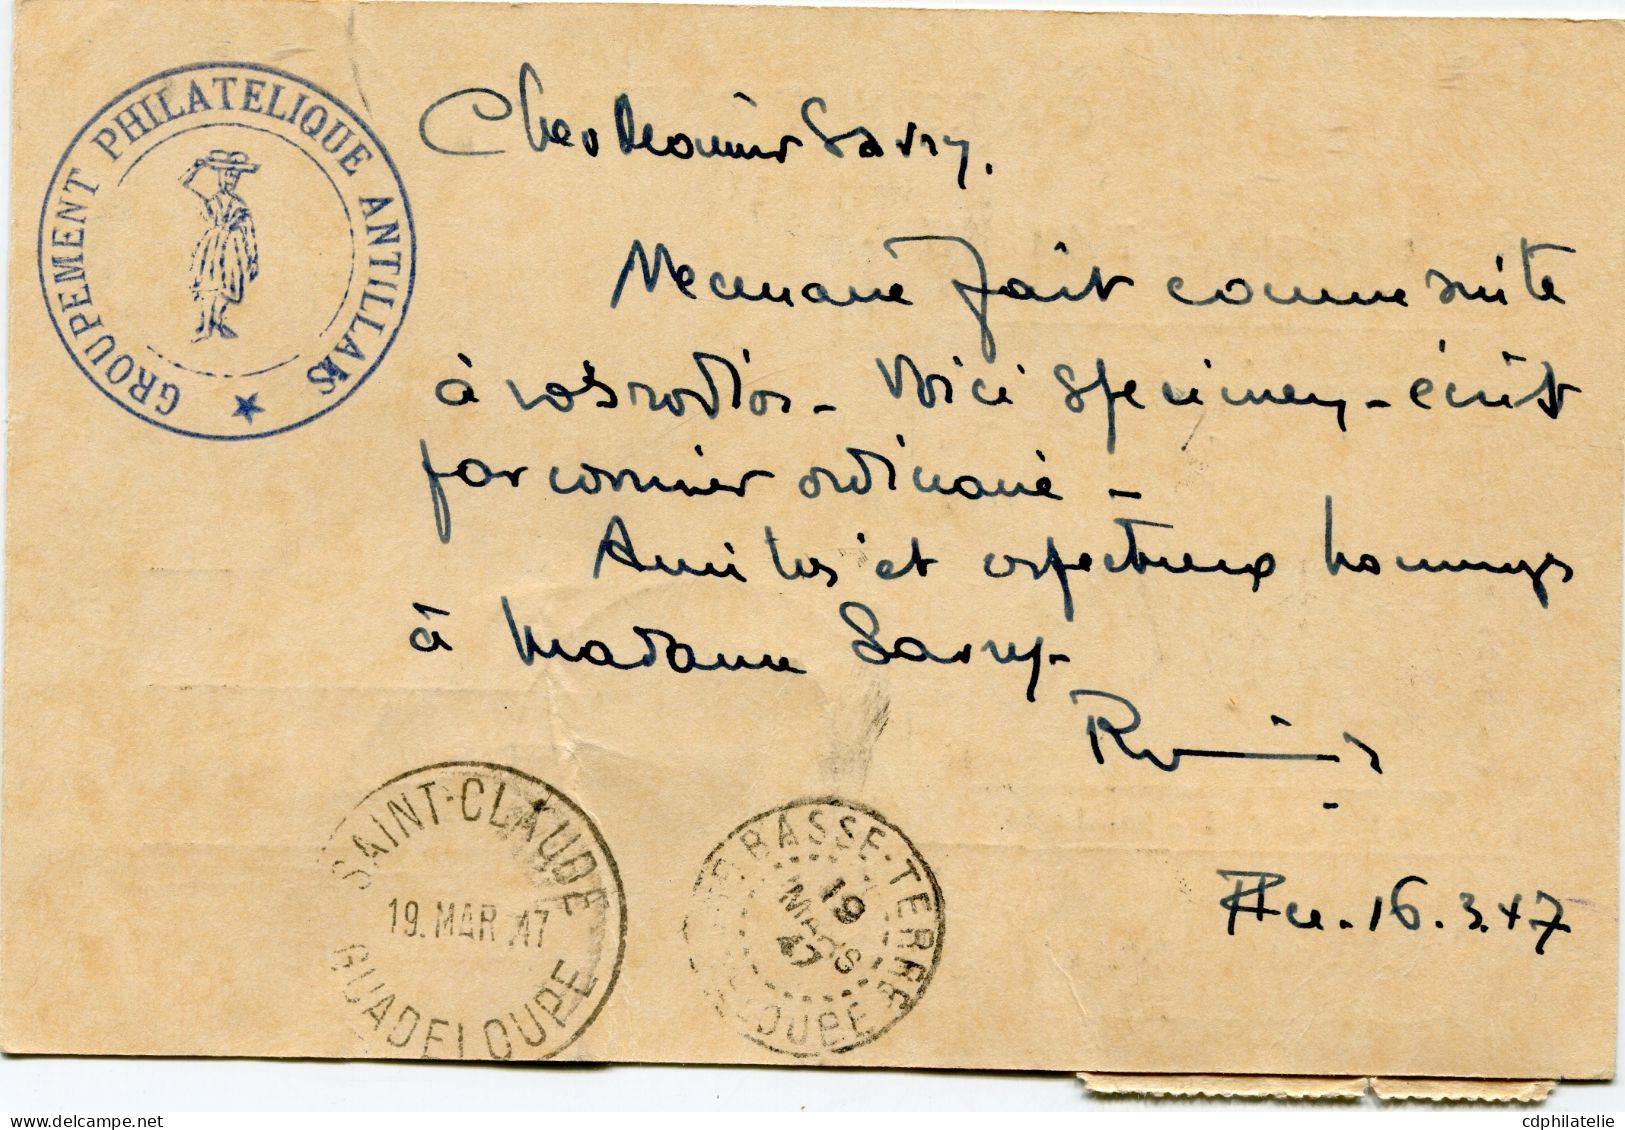 GROUPEMENT PHILATELIQUE ANTILLAIS
Cher Monsieur Savry.
Necessaire fait comme suite
à vos radios - Voici specimen - écrit
par courrier ordinaire -
Amitiés et respectueux hommages
à Madame Savry -
16.3.47
SAINT-CLAUDE
19. MAR 47
GUADELOUPE
BASSE-TERRE
19
MARS
47
cdphilatelie